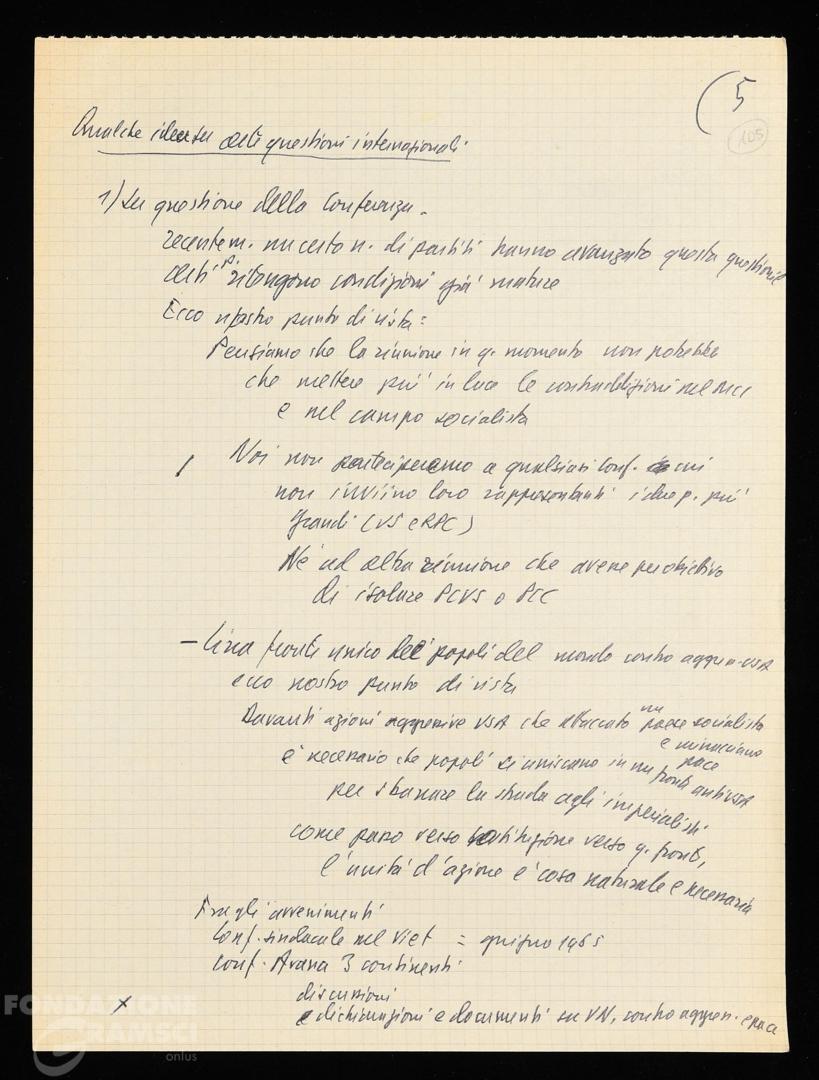 (5
105
Qualche idea su questioni internazionali.
1) su questione della Conferenza.
recentem. un certo n. di partiti hanno avanzato questa questione
ritengono condizioni già mature
Ecco nostro punto di vista:
Pensiamo che la riunione in q. momento non potrebbe
che mettere più in luce le contraddizioni nel MCI
e nel campo socialista
Noi non parteciperemo a qualsiasi Conf. in cui
non inviino loro rappresentanti i due p. più
grandi (US e RPC)
Né ad altra riunione che avesse per obiettivo
di isolare PCUS o PCC
- Circa fronte unico dei popoli del mondo contro aggres. USA
ecco nostro punto di vista
Davanti azioni aggressive USA che attaccato un paese socialista
e minacciano pace
è necessario che popoli si uniscano in un fronte antiUSA
per sbarrare la strada agli imperialisti
come passo verso costituzione verso q. fronte,
l'unità d'azione è cosa naturale e necessaria
Fra gli avvenimenti
Conf. sindacale nel Viet = giugno 1965
Conf. Avana 3 continenti
discussioni
e dichiarazioni e documenti su VN, contro aggress. e pace
x
FONDAZIONE
GRAMSCI
onlus